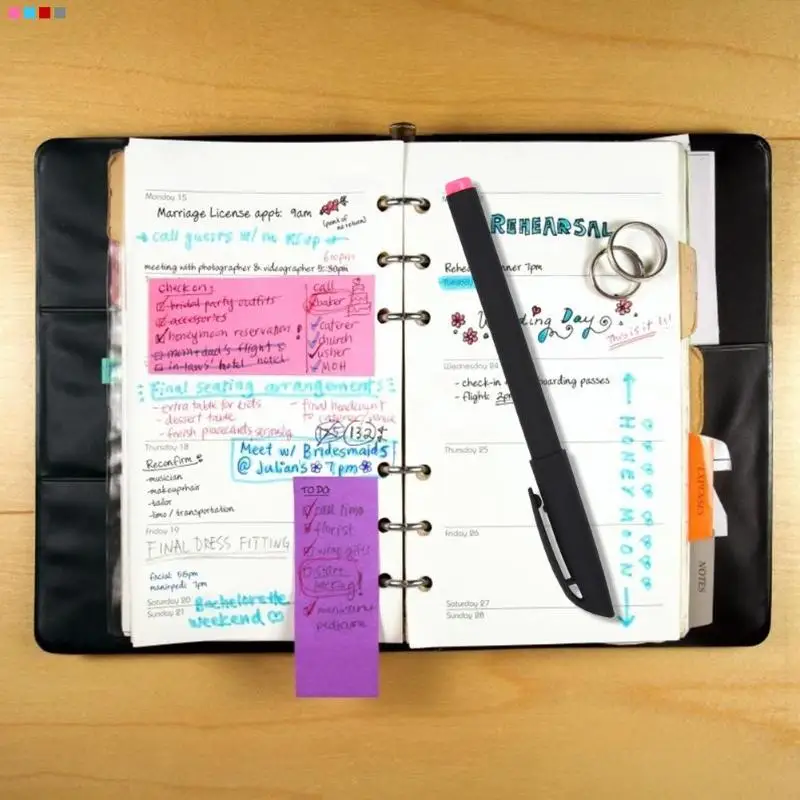 Monday 15
Marriage License appt: 9am
(point of no return)
call guests w/ no RSVP
6:00pm
meeting with photographer & videographer 5:30pm
check on:
bridal party outfits
accessories
honeymoon reservation!
mom+dad's flight
in-laws' hotel
call
baker
caterer
church
usher
MOH
Final seating arrangements
- extra table for kids
- dessert table
- finish placecards
- final headcount
to caterer/venue
132
Thursday 18
Reconfirm
-musician
-makeup/hair
-tailor
-limo / transportation
Meet w/ Bridesmaids
@ Julian's 7pm
Friday 19
FINAL DRESS FITTING
facial: 5pm
mani+pedi: 7pm
Saturday 20
Sunday 21
Bachelorette
weekend
TO DO
call limo
florist
start
packing!
manicure
pedicure
REHEARSAL
nner 7pm
ding Day
This is it!!
Wednesday 24
- check-in
oarding passes
- flight:
Thursday 25
Friday 26
Saturday 27
Sunday 28
HONEYMOON
EXPENSES
NOTES